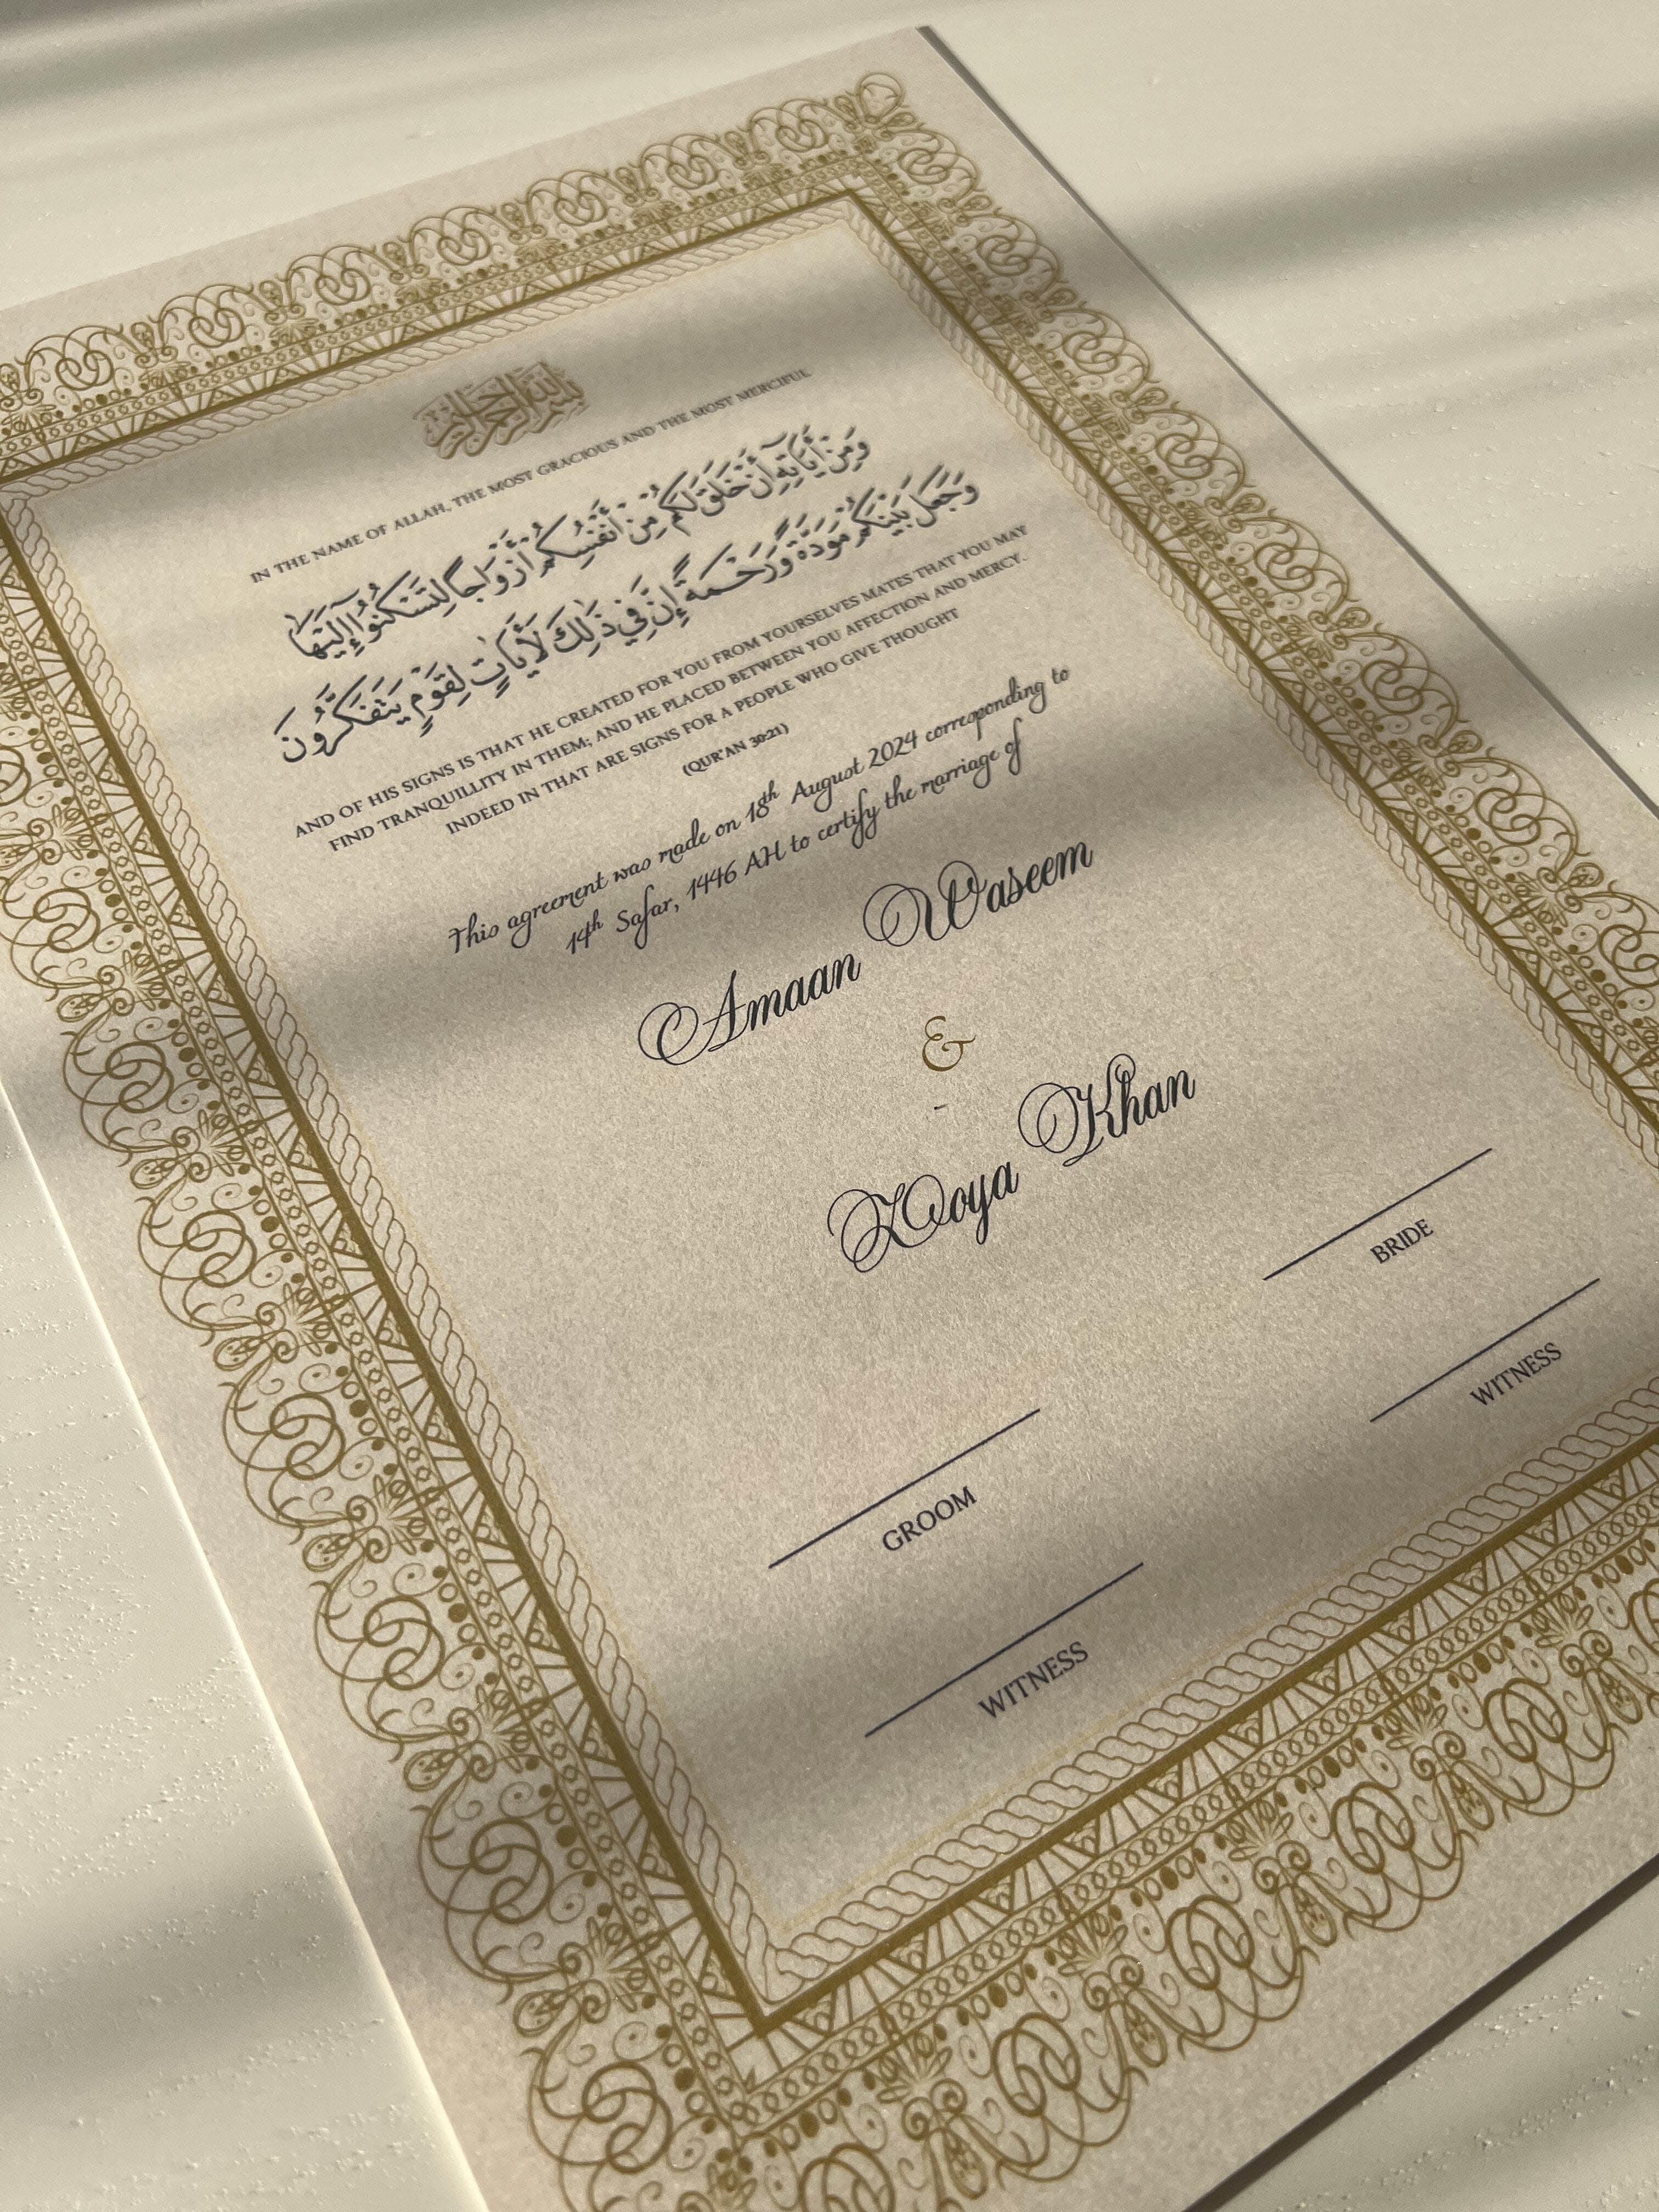 بسم الله الرحمن الرحيم
IN THE NAME OF ALLAH, THE MOST GRACIOUS AND THE MOST MERCIFUL
وَمِنْ أٰيَاتِهِ أَنْ خَلَقَ لَكُم مِنْ أَنْفُسِكُمْ أَزْوَاجًا لِتَسْكُنُوٓا إِلَيْهَا
وَجَعَلَ بَيْنَكُمْ مَوَدَّةً وَرَحْمَةً إِنَّ فِي ذٰلِكَ لَأَيَاتٍ لِقَوْمٍ يَتَفَكَّرُونَ
AND OF HIS SIGNS IS THAT HE CREATED FOR YOU FROM YOURSELVES MATES THAT YOU MAY
FIND TRANQUILLITY IN THEM; AND HE PLACED BETWEEN YOU AFFECTION AND MERCY.
INDEED IN THAT ARE SIGNS FOR A PEOPLE WHO GIVE THOUGHT
(QUR'AN 30:21)
This agreement was made on 18th August 2024 corresponding to
14th Safar, 1446 AH to certify the marriage of
Amaan Waseem
&
Zoya Khan
GROOM
BRIDE
WITNESS
WITNESS